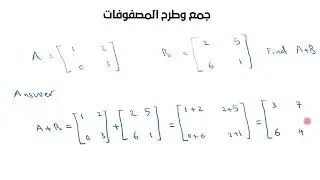 جمع وطرح المصفوفات
A = [1 2; 0 3] B = [2 5; 6 1] Find A+B
Answer
A+B = [1 2; 0 3] + [2 5; 6 1] = [1+2 2+5; 0+6 3+1] = [3 7; 6 4]